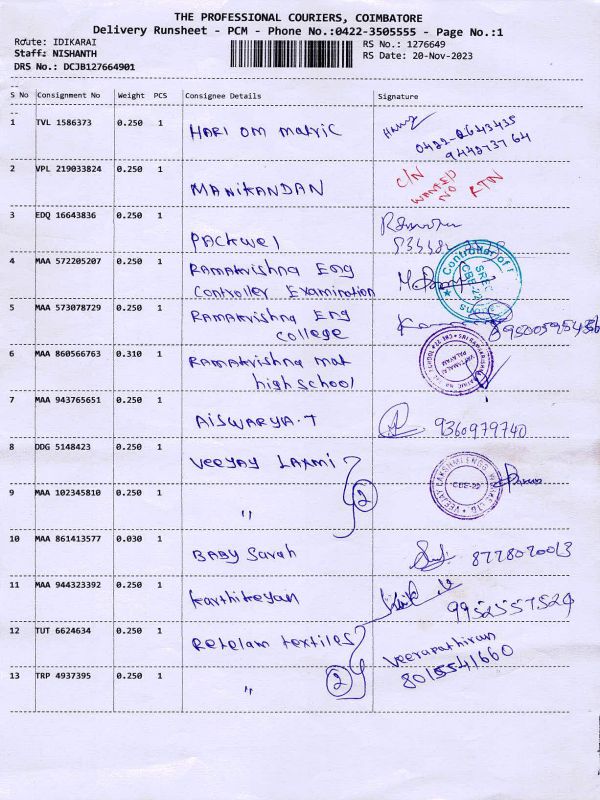 THE PROFESSIONAL COURIERS, COIMBATORE
Delivery Runsheet - PCM - Phone No.:0422-3505555 - Page No.:1
Route: IDIKARAI
RS No.: 1276649
Staff: NISHANTH
RS Date: 20-Nov-2023
DRS No.: DCJB127664901
S No Consignment No Weight PCS Consignee Details Signature
1 TVL 1586373 0.250 1 HARI OM matric
0422-2643435
944273764
2 VPL 219033824 0.250 1 MANIKANDAN C/N WANTED NO RTN
3 EDQ 16643836 0.250 1 PACKWEl
4 MAA 572205207 0.250 1 RAMAKrishna Eng
Controller Examination
Controller of
SREC
CBE-22
5 MAA 573078729 0.250 1 RAMAKrishna Eng
college
6 MAA 860566763 0.310 1 RAMAKrishna mat
high school
7 MAA 943765651 0.250 1 AISWARYA.T 9360979740
8 DDG 5148423 0.250 1 VEEJAY LAXMI
CBE-22
9 MAA 102345810 0.250 1 " 2
10 MAA 861413577 0.030 1 BABY Sarah 8778020013
11 MAA 944323392 0.250 1 Karthikeyan 9952557524
12 TUT 6624634 0.250 1 Retelam textiles Veerapathiran
8015541660
13 TRP 4937395 0.250 1 " 2